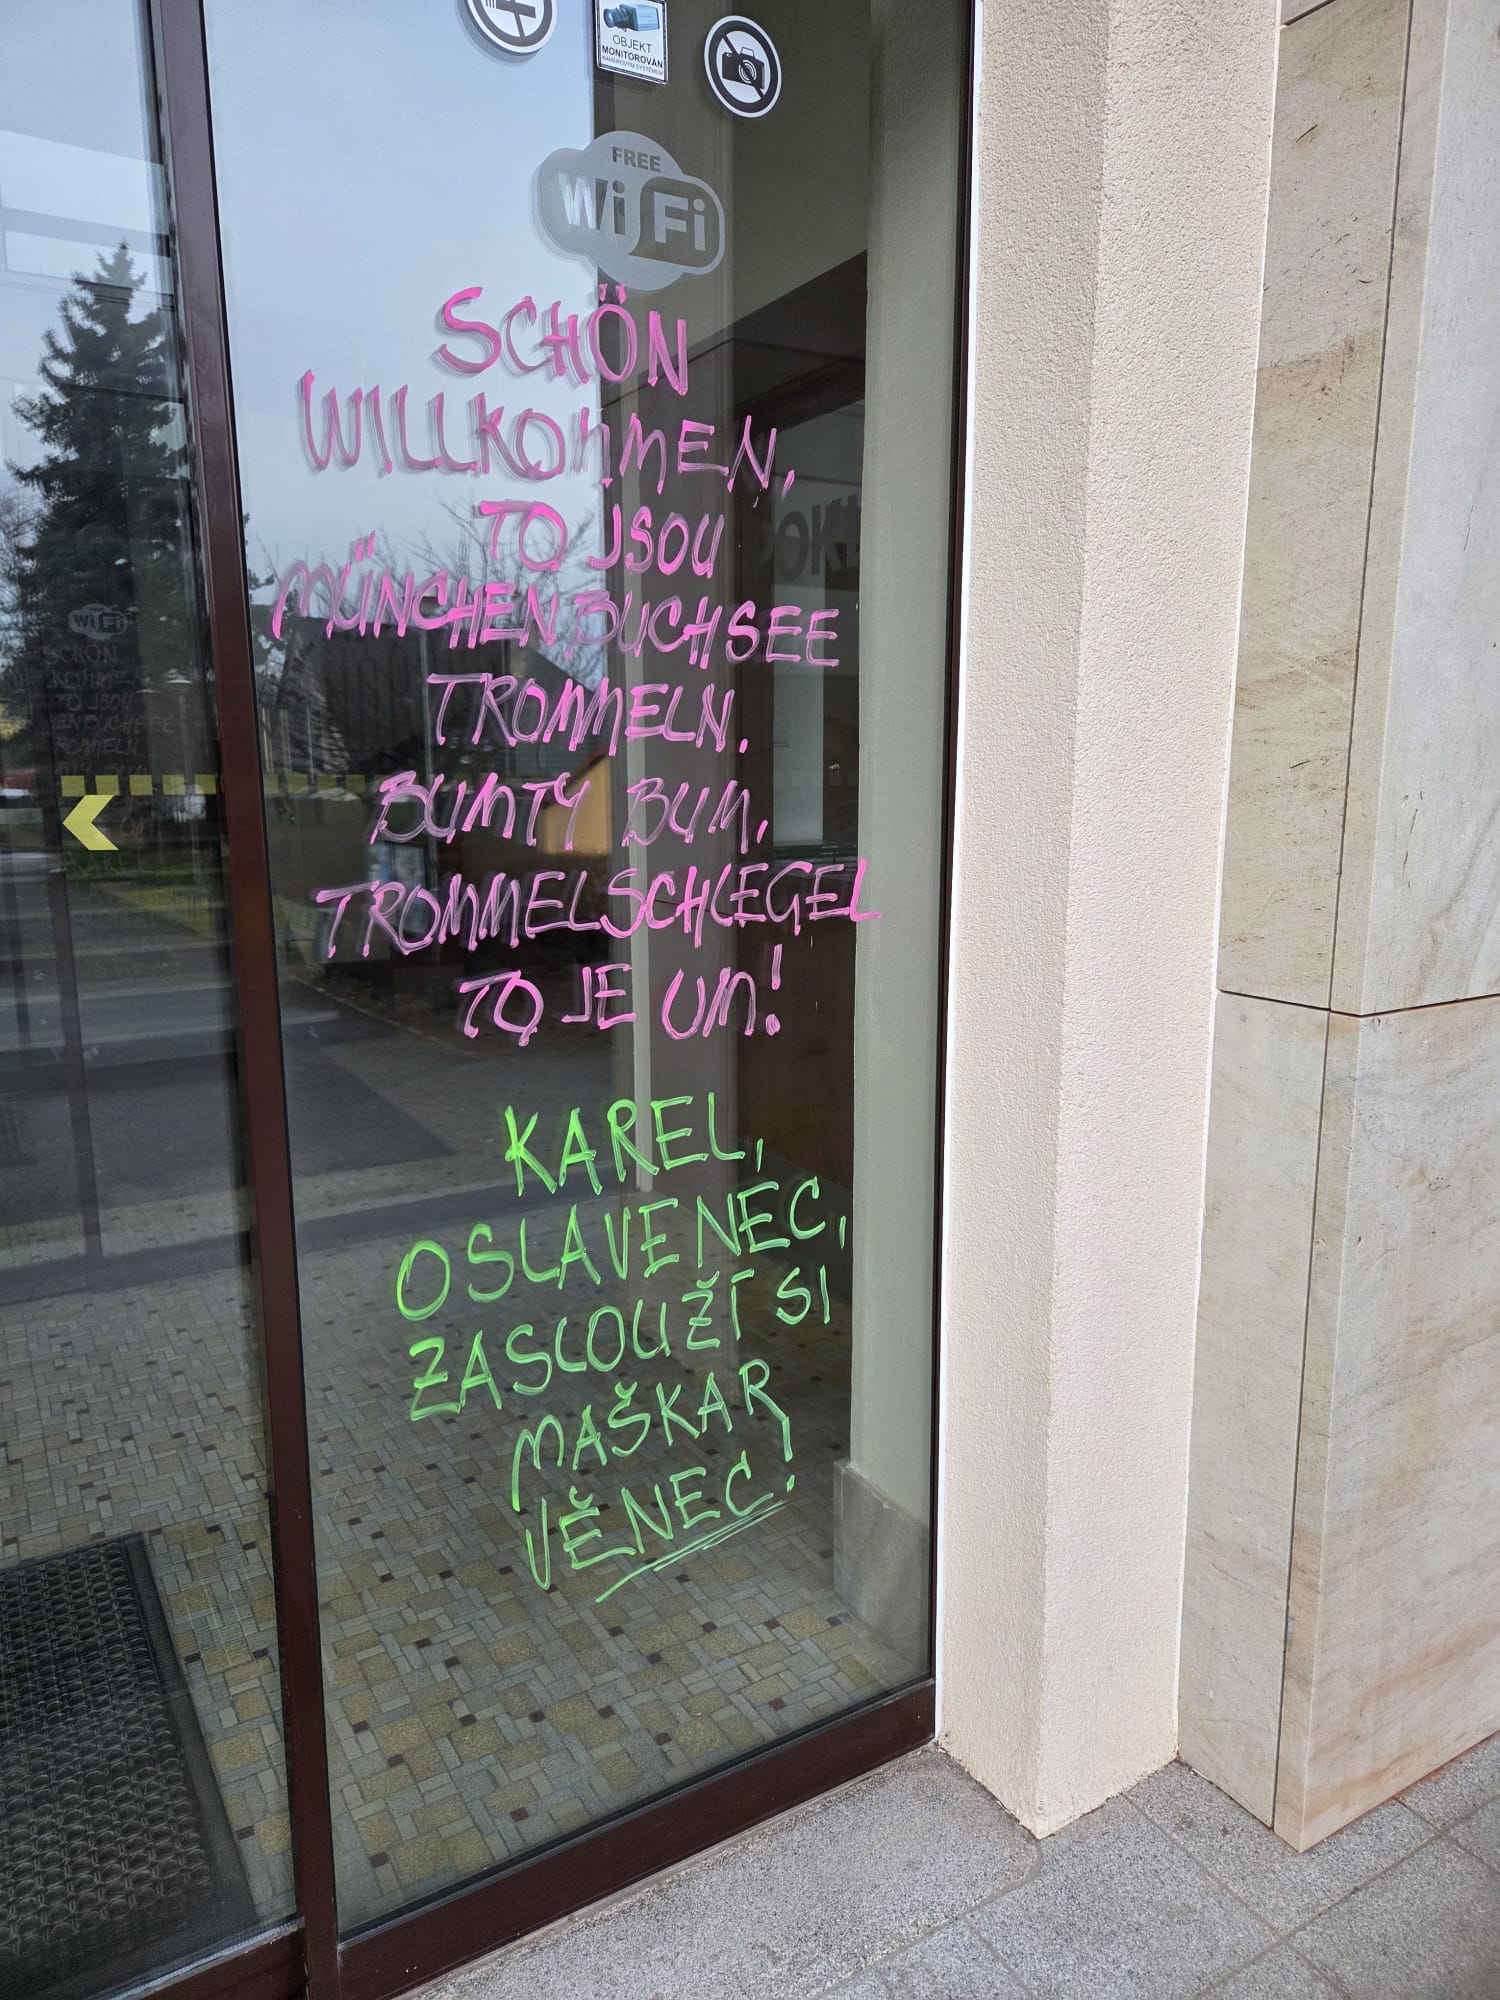 OBJEKT
MONITOROVÁN
KAMEROVÝM SYSTÉMEM
FREE
WiFi
SCHÖN
WILLKOMMEN,
TO JSOU
MÜNCHENBUCHSEE
TROMMELN.
BUMTY BUM,
TROMMELSCHLEGEL
TO JE UM!
KAREL,
OSLAVENEC,
ZASLOUŽÍ SI
MAŠKAR
VĚNEC!